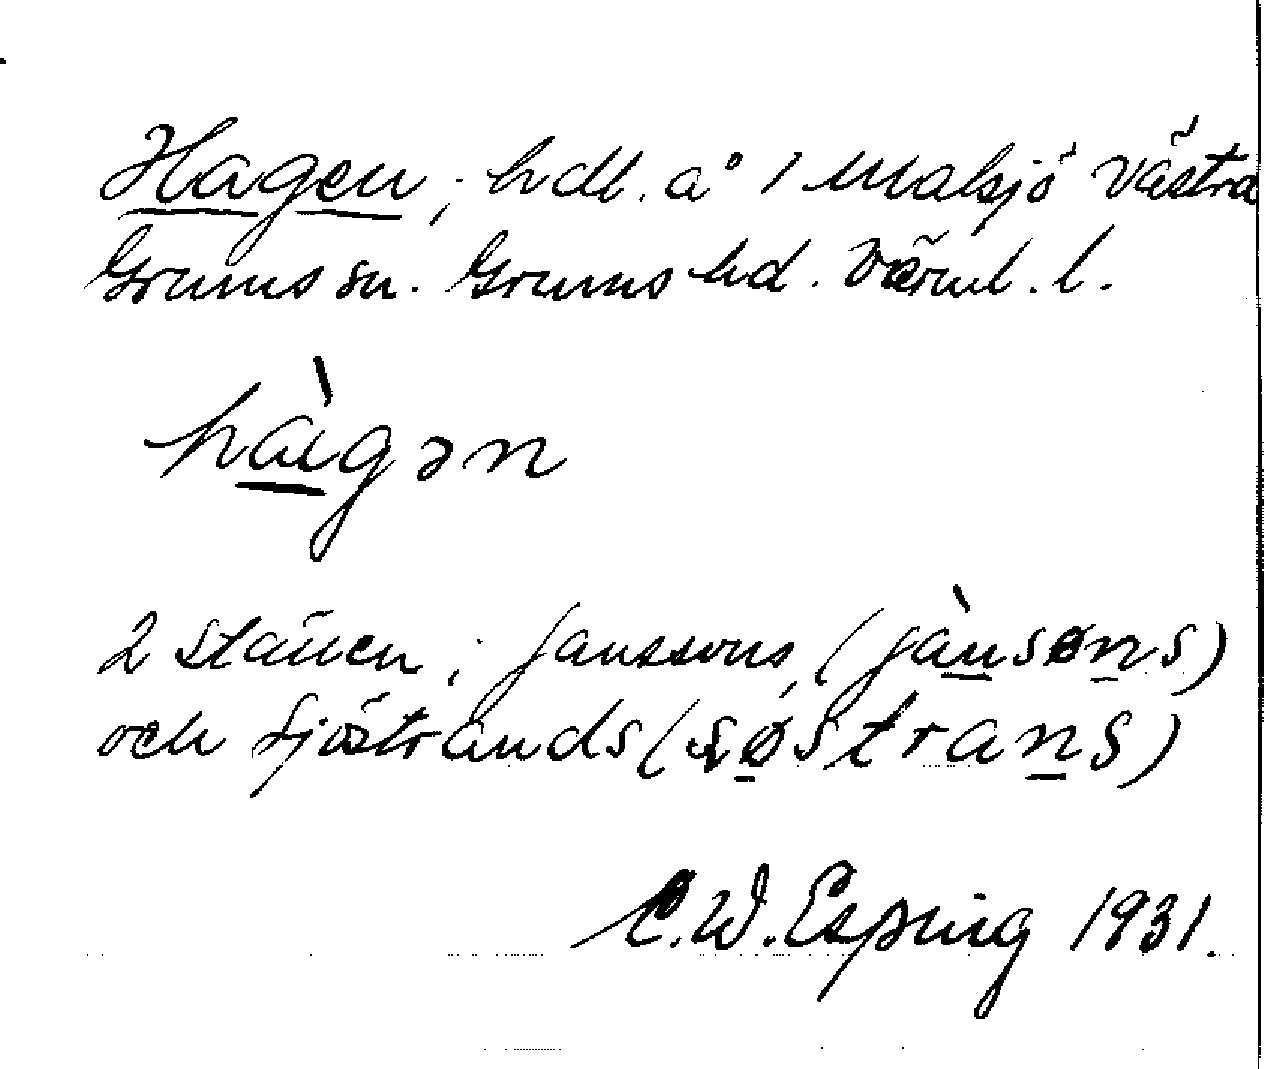 Hagen, hdl. å 1 Malsjö Västra
Grums sn. Grums hd. Värml. l.
hàgən
2 ställen; Janssons, (jànsøns)
och Sjöstrands (søstrans)
C. W. Esping 1931.